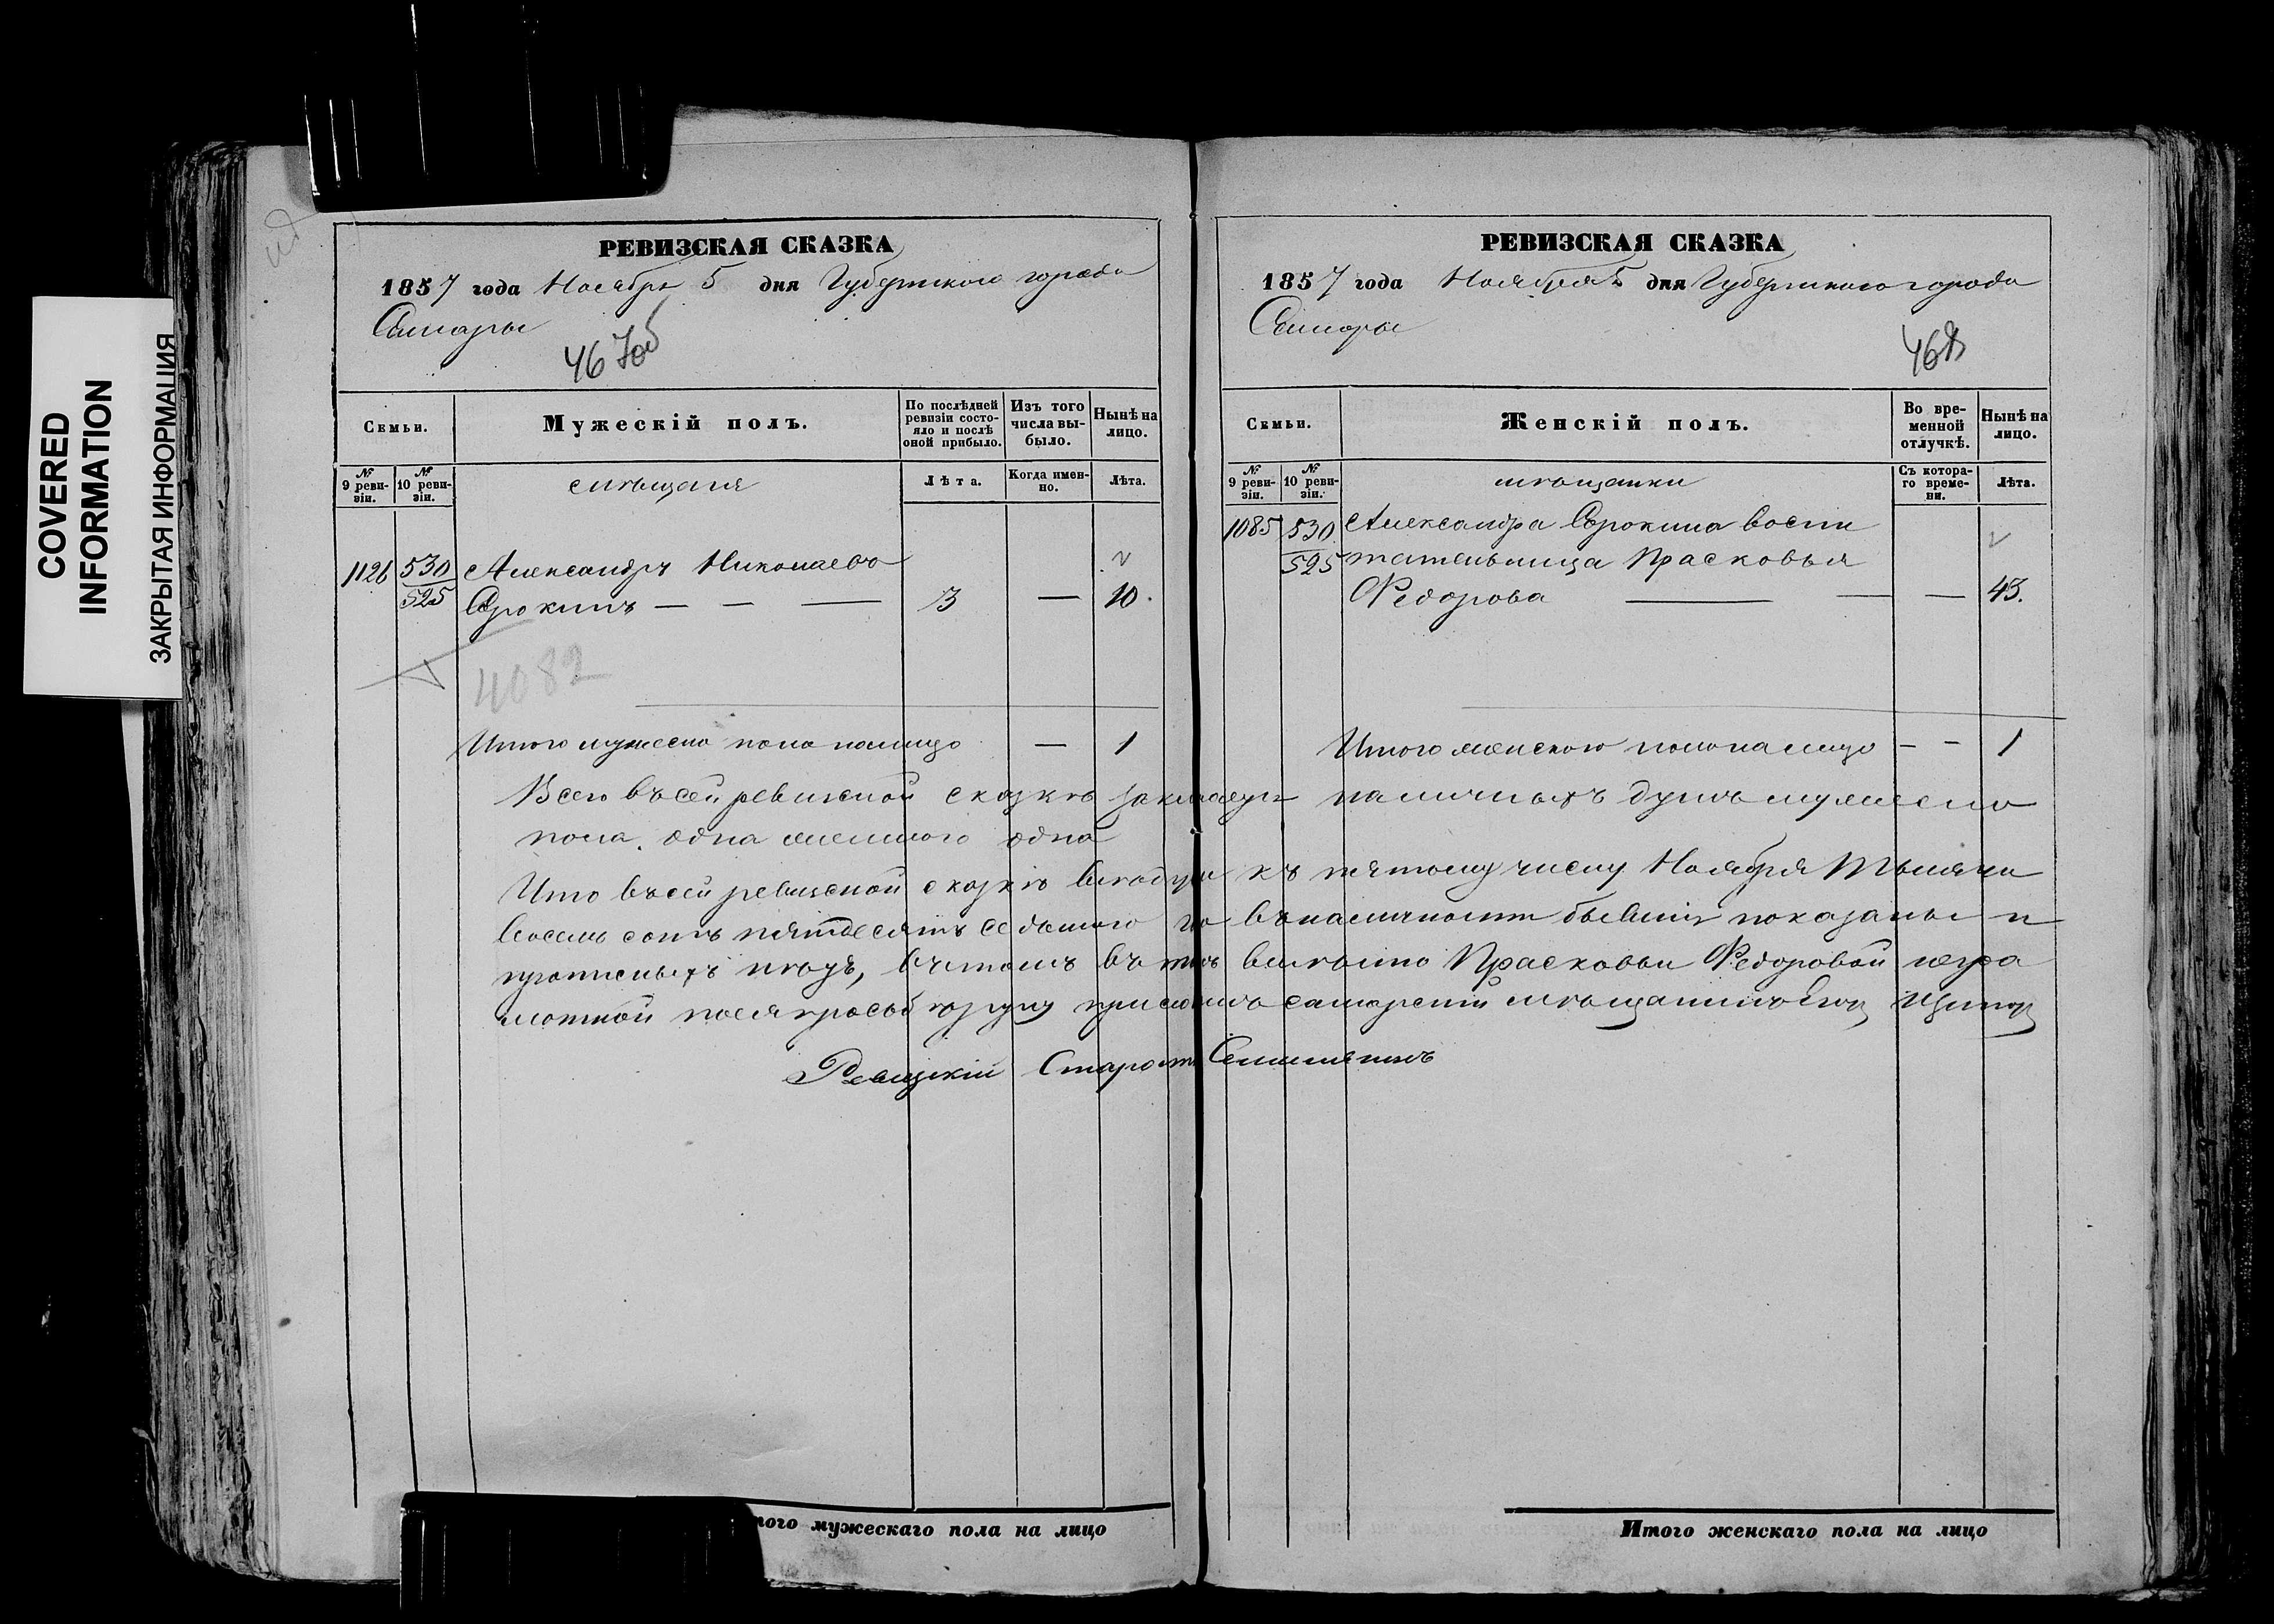 COVERED
INFORMATION
ЗАКРЫТАЯ ИНФОРМАЦИЯ
РЕВИЗСКАЯ СКАЗКА
1857 года Ноября 5 дня Губернскаго города
Самары
467об
Семьи.
Мужескій полъ.
По послѣдней ревизіи состояло и послѣ оной прибыло.
Изъ того числа выбыло.
Нынѣ на лицо.
№ 9 ревизіи.
№ 10 ревизіи.
мѣщане
Лѣта.
Когда именно.
Лѣта.
1126 530 Александръ Николаевъ
525 Сорокинъ — — — 3 — 10.
4082
Итого мужеска пола налицо — 1
РЕВИЗСКАЯ СКАЗКА
1857 года Ноября 5 дня Губернскаго города
Самары
468
Семьи.
Женскій полъ.
Во временной отлучкѣ.
Нынѣ на лицо.
№ 9 ревизіи.
№ 10 ревизіи.
мѣщанки
Съ котораго времени.
Лѣта.
1085 530 Александра Сорокина воспи
525 тательница Прасковья
Федорова — — — 43.
Итого женскаго пола на лицо — — 1
Всего въ сей ревизской сказкѣ наличныхъ душъ мужеска
пола одна женскаго одна
Что въ сей ревизской сказкѣ къ пятому числу Ноября Тысяча
восемь сотъ пятдесятъ седьмаго въ наличности бывшіе показаны и
прописныхъ нѣтъ, въ томъ вмѣсто Прасковьи Федоровой негра
мотной самарскій мѣщанинъ
Ревизскій Староста
Итого мужескаго пола на лицо
Итого женскаго пола на лицо